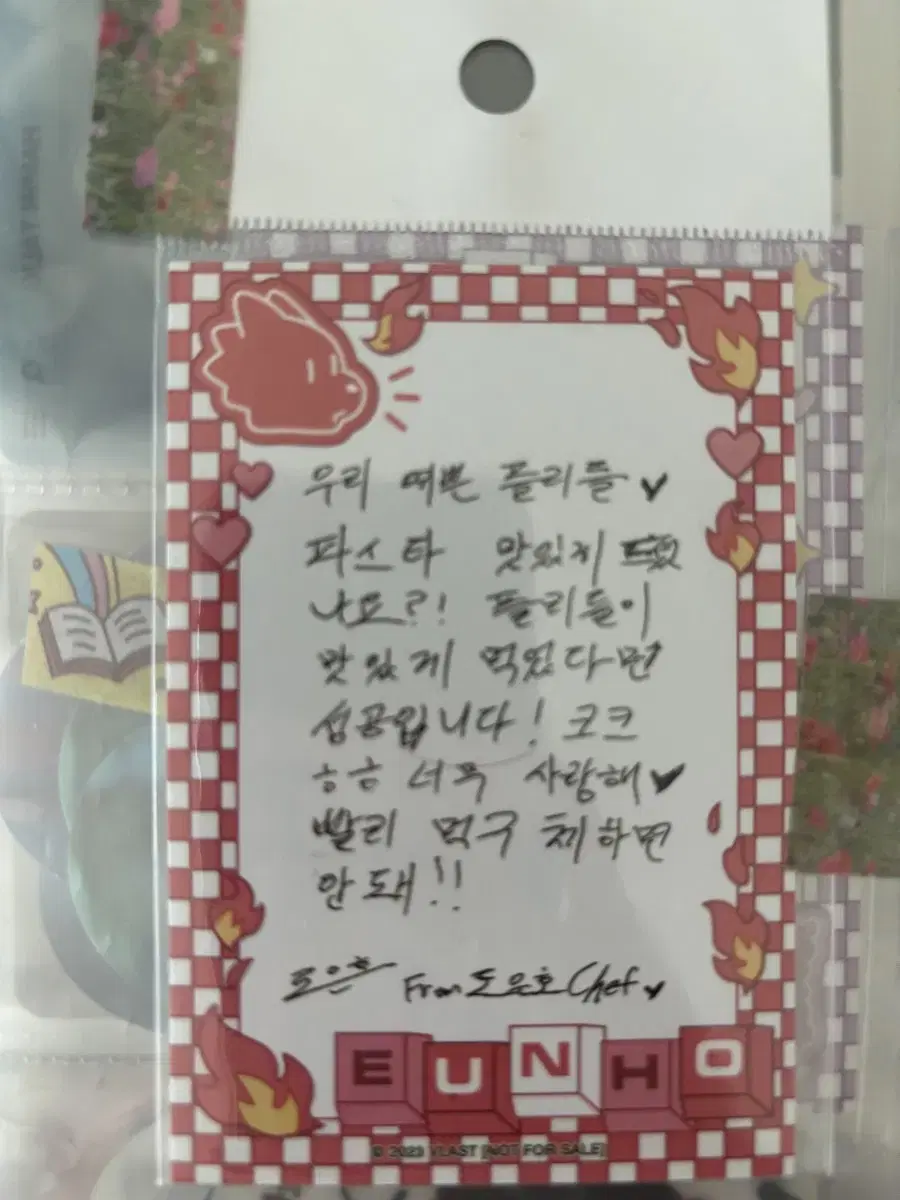 우리 예쁜 플리들♥
파스타 맛있게 드셨
나요?! 플리들이
맛있게 먹었다면
성공입니다! 코크
ㅎㅎ 너무 사랑해♥
빨리 먹구 체하면
안돼!!
도은호 From 도은호 Chef♥
EUNHO
© 2023 VLAST [NOT FOR SALE]